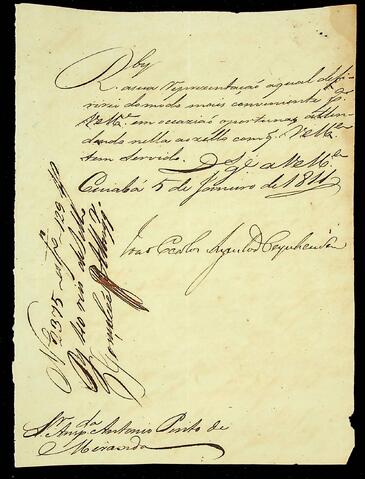 Rby
R. a sua representação a qual defi
rirei do modo mais conveniente p.r
V.Mce em occazião oportuna; atten
dendo nella ao zello com q. V.Mce
tem Servido. D.s g.e a V.Mce
Cuiabá 5 de Janeiro de 1811
João Carlos Augusto d'Oeynhausen
N 2375
120
Gonçalves
S.r Antonio Pinto de
Miranda